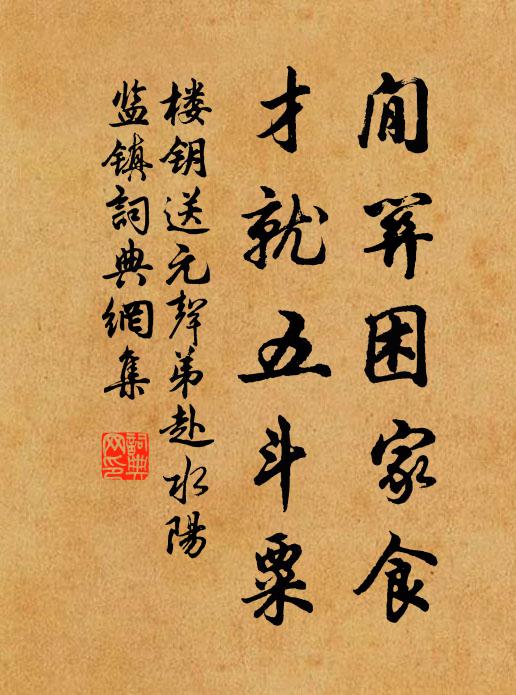 間關困家食
才就五斗粟
楼钥送元聲弟赴水陽
监镇詞典網集
詞典网印